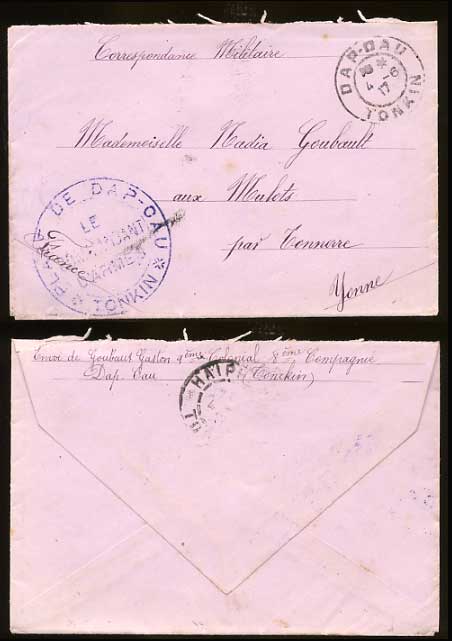 Correspondance Militaire
DAP-CAU
TONKIN
Mademoiselle Nadia Goubault
aux Mulots
par Tonnerre
Yonne
France
PLACE DE DAP-CAU
LE
COMMANDANT
D'ARMES
TONKIN
Envoi de Goubault Gaston 4ème Colonial 8ème Compagnie
Dap. Cau (Tonckin)
HAIPH